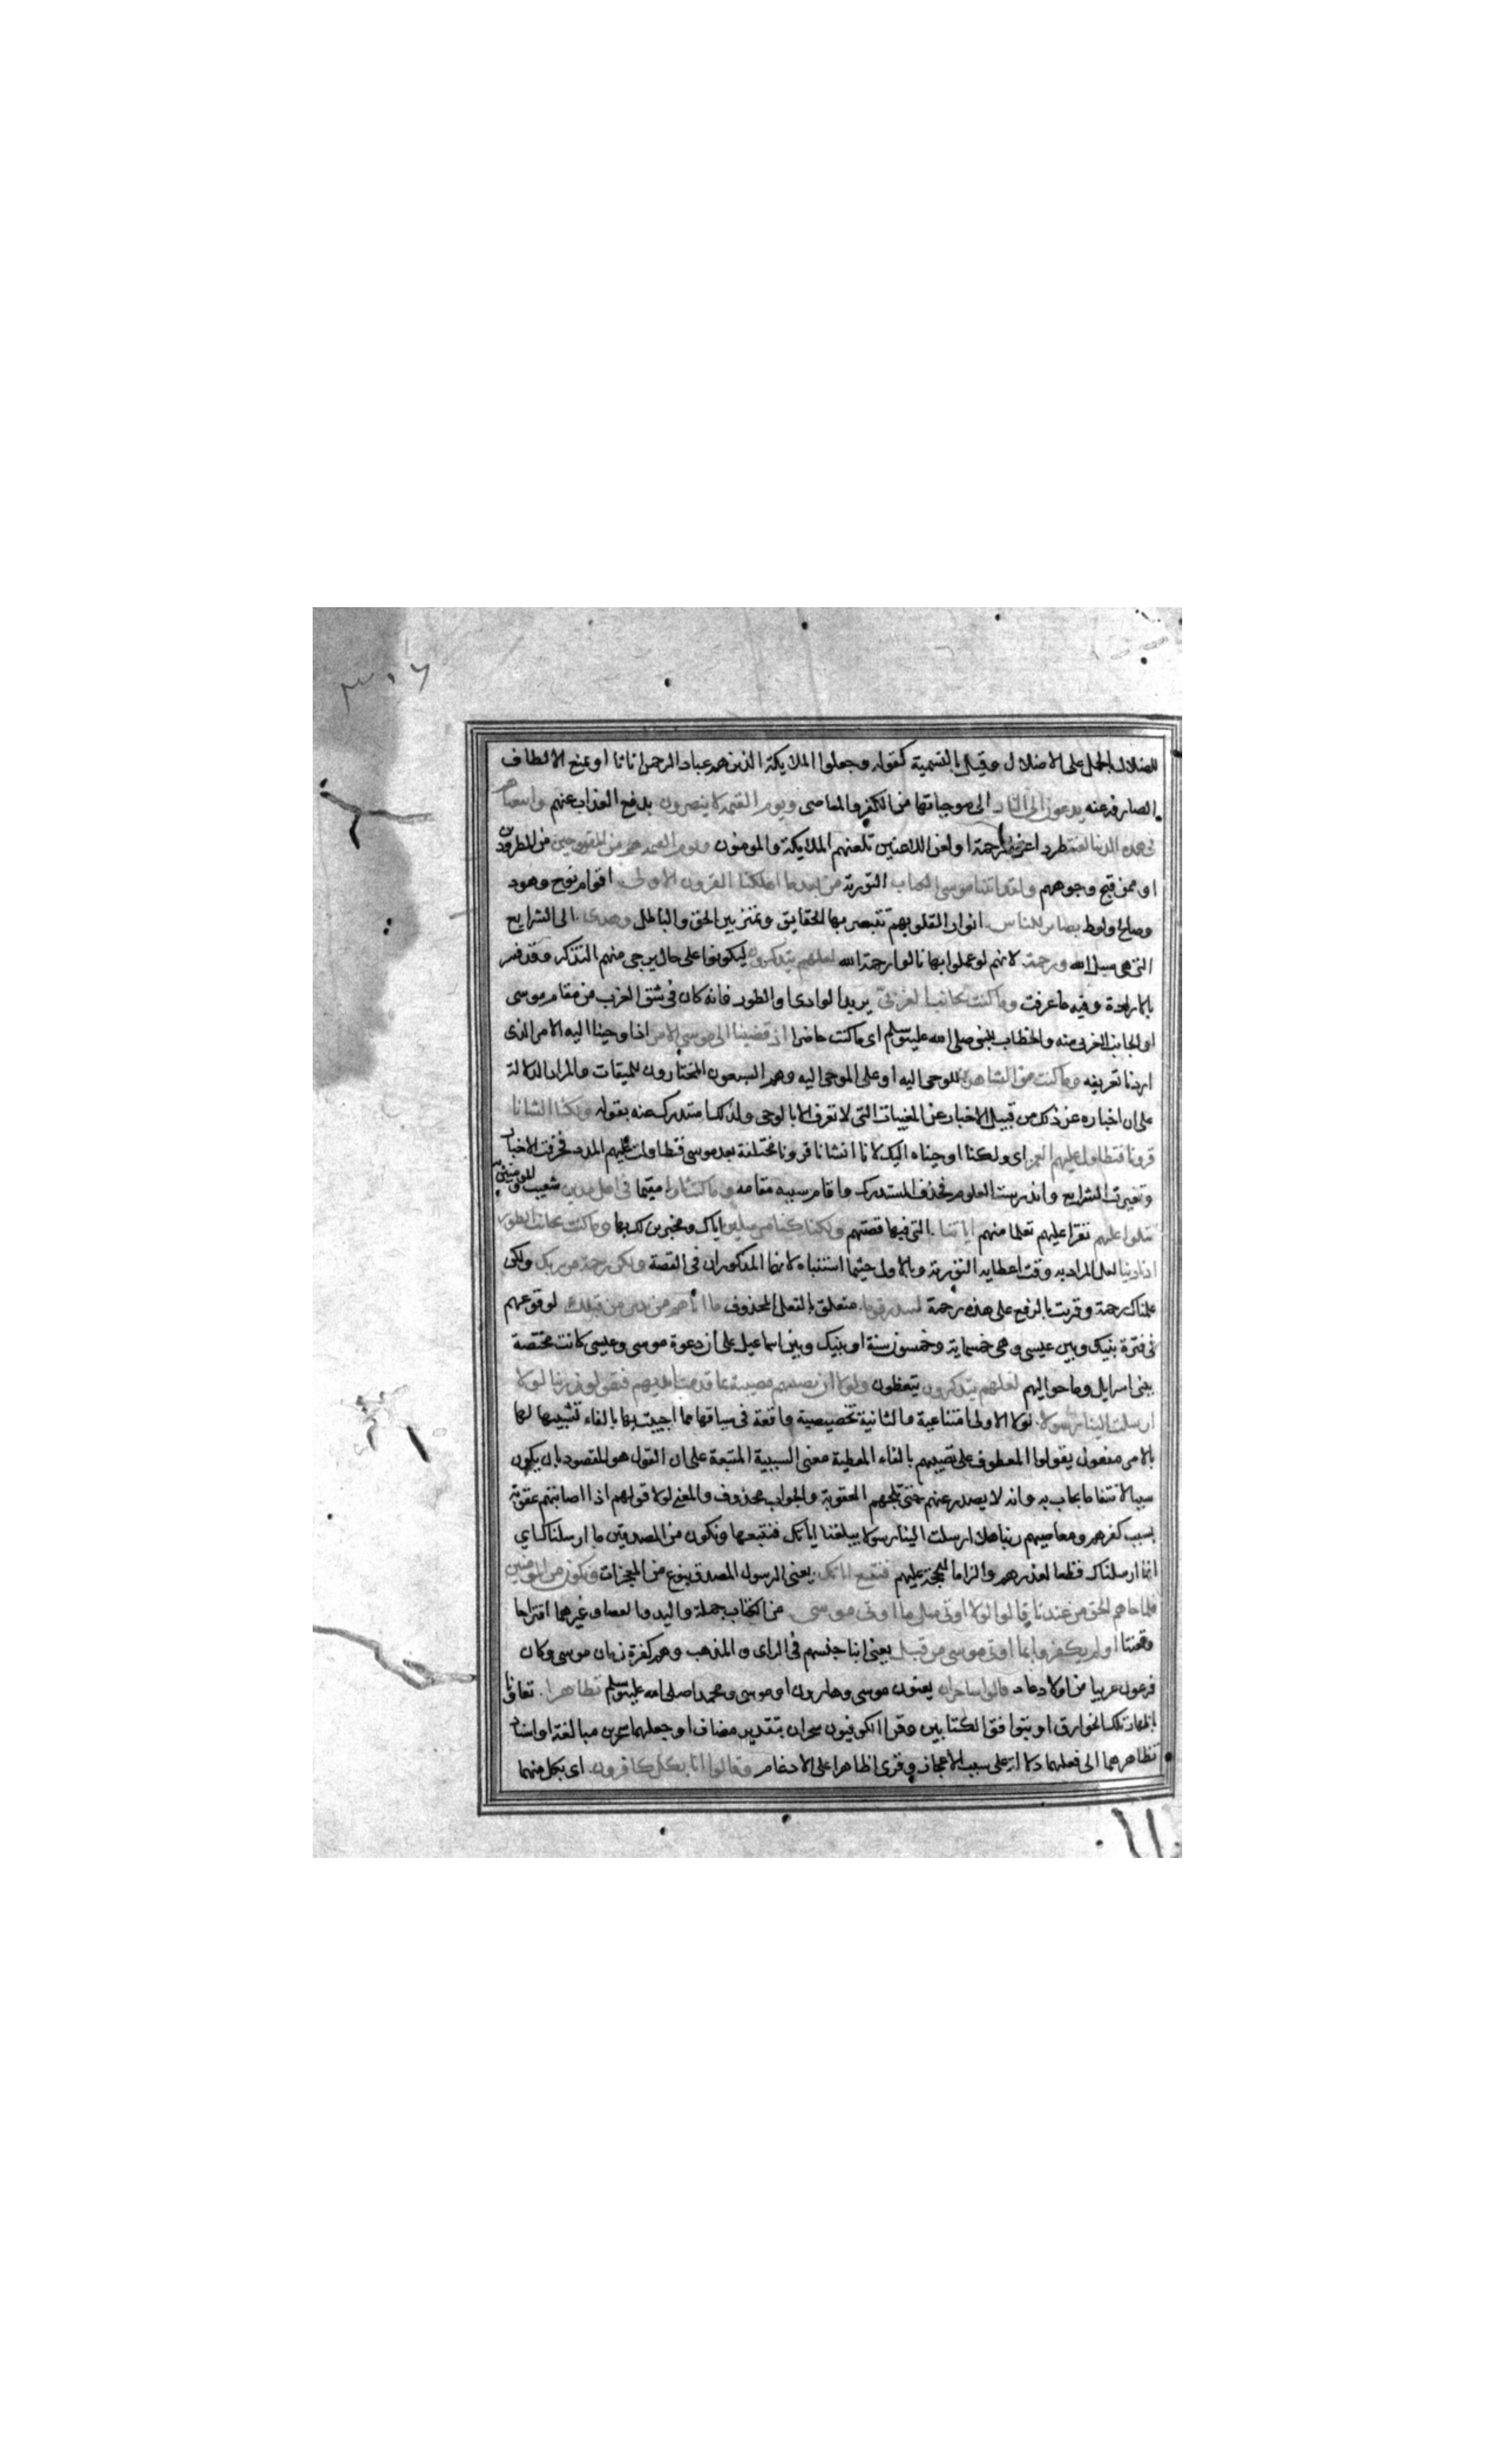 ٣٠٦
للضلال بالحمل على الاضلال وقيل بالتسمية كقوله وجعلوا الملايكة الذين هم عباد الرحمن اناثا او بمنع الالطاف
الصارفة عنه يدعون الى النار الى موجباتها من الكفر والمعاصى ويوم القيمة لا ينصرون بدفع العذاب عنهم واتبعناهم
فى هذه الدنيا لعنة طردا عن الرحمة او لعن اللاعنين تلعنهم الملايكة والمومنون ويوم القيمة هم من المقبوحين من المطرودين
او ممن قبح وجوههم ولقد اتينا موسى الكتاب التورية من بعد ما اهلكنا القرون الاولى اقوام نوح وهود
وصالح ولوط بصاير للناس انوارا لقلوبهم تتبصر بها الحقايق وتميز بين الحق والباطل وهدى الى الشرايع
التى هى سبل الله ورحمة لانهم لو عملوا بها نالوا رحمة الله لعلهم يتذكرون ليكونوا على حال يرجى منهم التذكر وقد فسر
بالارادة وفيه ما عرفت وما كنت بجانب الغربى يريد الوادى او الطور فانه كان فى شق الغرب من مقام موسى
او الجانب الغربى منه والخطاب للنبى صلى الله عليه وسلم اى ما كنت حاضرا اذ قضينا الى موسى الامر اذ اوحينا اليه الامر الذى
اردنا تعريفه وما كنت من الشاهدين للوحى اليه او على الموحى اليه وهم السبعون المختارون للميقات والمراد الدلالة
على ان اخباره عن ذلك من قبيل الاخبار عن المغيبات التى لا تعرف الا بالوحى ولذلك استدرك عنه بقوله ولكنا انشانا
قرونا فتطاول عليهم العمر اى ولكنا اوحيناه اليك لانا انشانا قرونا مختلفة بعد موسى فتطاولت عليهم المدد فحرفت الاخبار
وتغيرت الشرايع واندرست العلوم فحذف المستدرك واقام سببه مقامه وما كنت ثاويا مقيما فى اهل مدين شعيب والمومنين به
تتلوا عليهم تقرا عليهم تعلما منهم اياتنا التى فيها قصتهم ولكنا كنا مرسلين اياك ومخبرين لك بها وما كنت بجانب الطور
اذ نادينا لعل المراد به وقت اعطايه التورية وبالاول حيثما استنباه لانهما المذكوران فى القصة ولكن رحمة من ربك ولكن
علمناك رحمة وقريت بالرفع على هذه رحمة لتنذر قوما متعلق بالفعل المحذوف ما اتاهم من نذير من قبلك لوقوعهم
فى فترة بينك وبين عيسى وهى خمسماية وخمسون سنة او بينك وبين اسماعيل على ان دعوة موسى وعيسى كانت مختصة
ببنى اسرايل وما حواليهم لعلهم يتذكرون يتعظون ولولا ان تصيبهم مصيبة بما قدمت ايديهم فيقولوا ربنا لولا
ارسلت الينا رسولا لولا الاولى امتناعية والثانية تحضيضية واقعة فى سياقها مما اجيبت بها بالفاء تشبيها لها
بالامر مفعول يقولوا المعطوف على تصيبهم بالفاء المعطية معنى السببية المنبهة على ان القول هو المقصود بان يكون
سببا لانتفاء ما يجاب به وانه لا يصدر عنهم حتى تلجهم العقوبة والجواب محذوف والمعنى لولا قولهم اذا اصابتهم عقوبة
بسبب كفرهم ومعاصيهم ربنا هلا ارسلت الينا رسولا يبلغنا اياتك فنتبعها ونكون من المصدقين ما ارسلناك اي
انما ارسلناك قطعا لعذرهم والزاما للحجة عليهم فنتبع اياتك يعنى الرسول المصدق بنوع من المعجزات ونكون من المومنين
فلما جاهم الحق من عندنا قالوا لولا اوتى مثل ما اوتى موسى من الكتاب جملة واليد والعصا وغيرهما اقتراحا
وتعنتا اولم يكفروا بما اوتى موسى من قبل يعنى ابنا جنسهم فى الراى والمذهب وهم كفرة زمان موسى وكان
فرعون عربيا من اولاد عاد قالوا ساحران يعنون موسى وهارون او موسى ومحمدا صلى الله عليه وسلم تظاهرا تعاونا
باظهار تلك الخوارق او بتوافق الكتابين وقرا الكوفيون سحران بتقدير مضاف او جعلهما سحرين مبالغة او اسناد
تظاهرهما الى فعلهما دلالة على سبب الاعجاز وقرى اظاهرا على الادغام وقالوا انا بكل كافرون اى بكل منهما